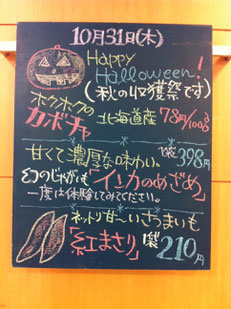 10月31日(木)
Happy
Halloween!
(秋の収穫祭です)
ホクホクの
カボチャ
北海道産 78円/100g
甘くて濃厚な味わい、
1袋398円
幻のじゃがいも「インカのめざめ」
一度は体験してみてください。
ネットリ甘〜いさつまいも
「紅まさり」1袋210円